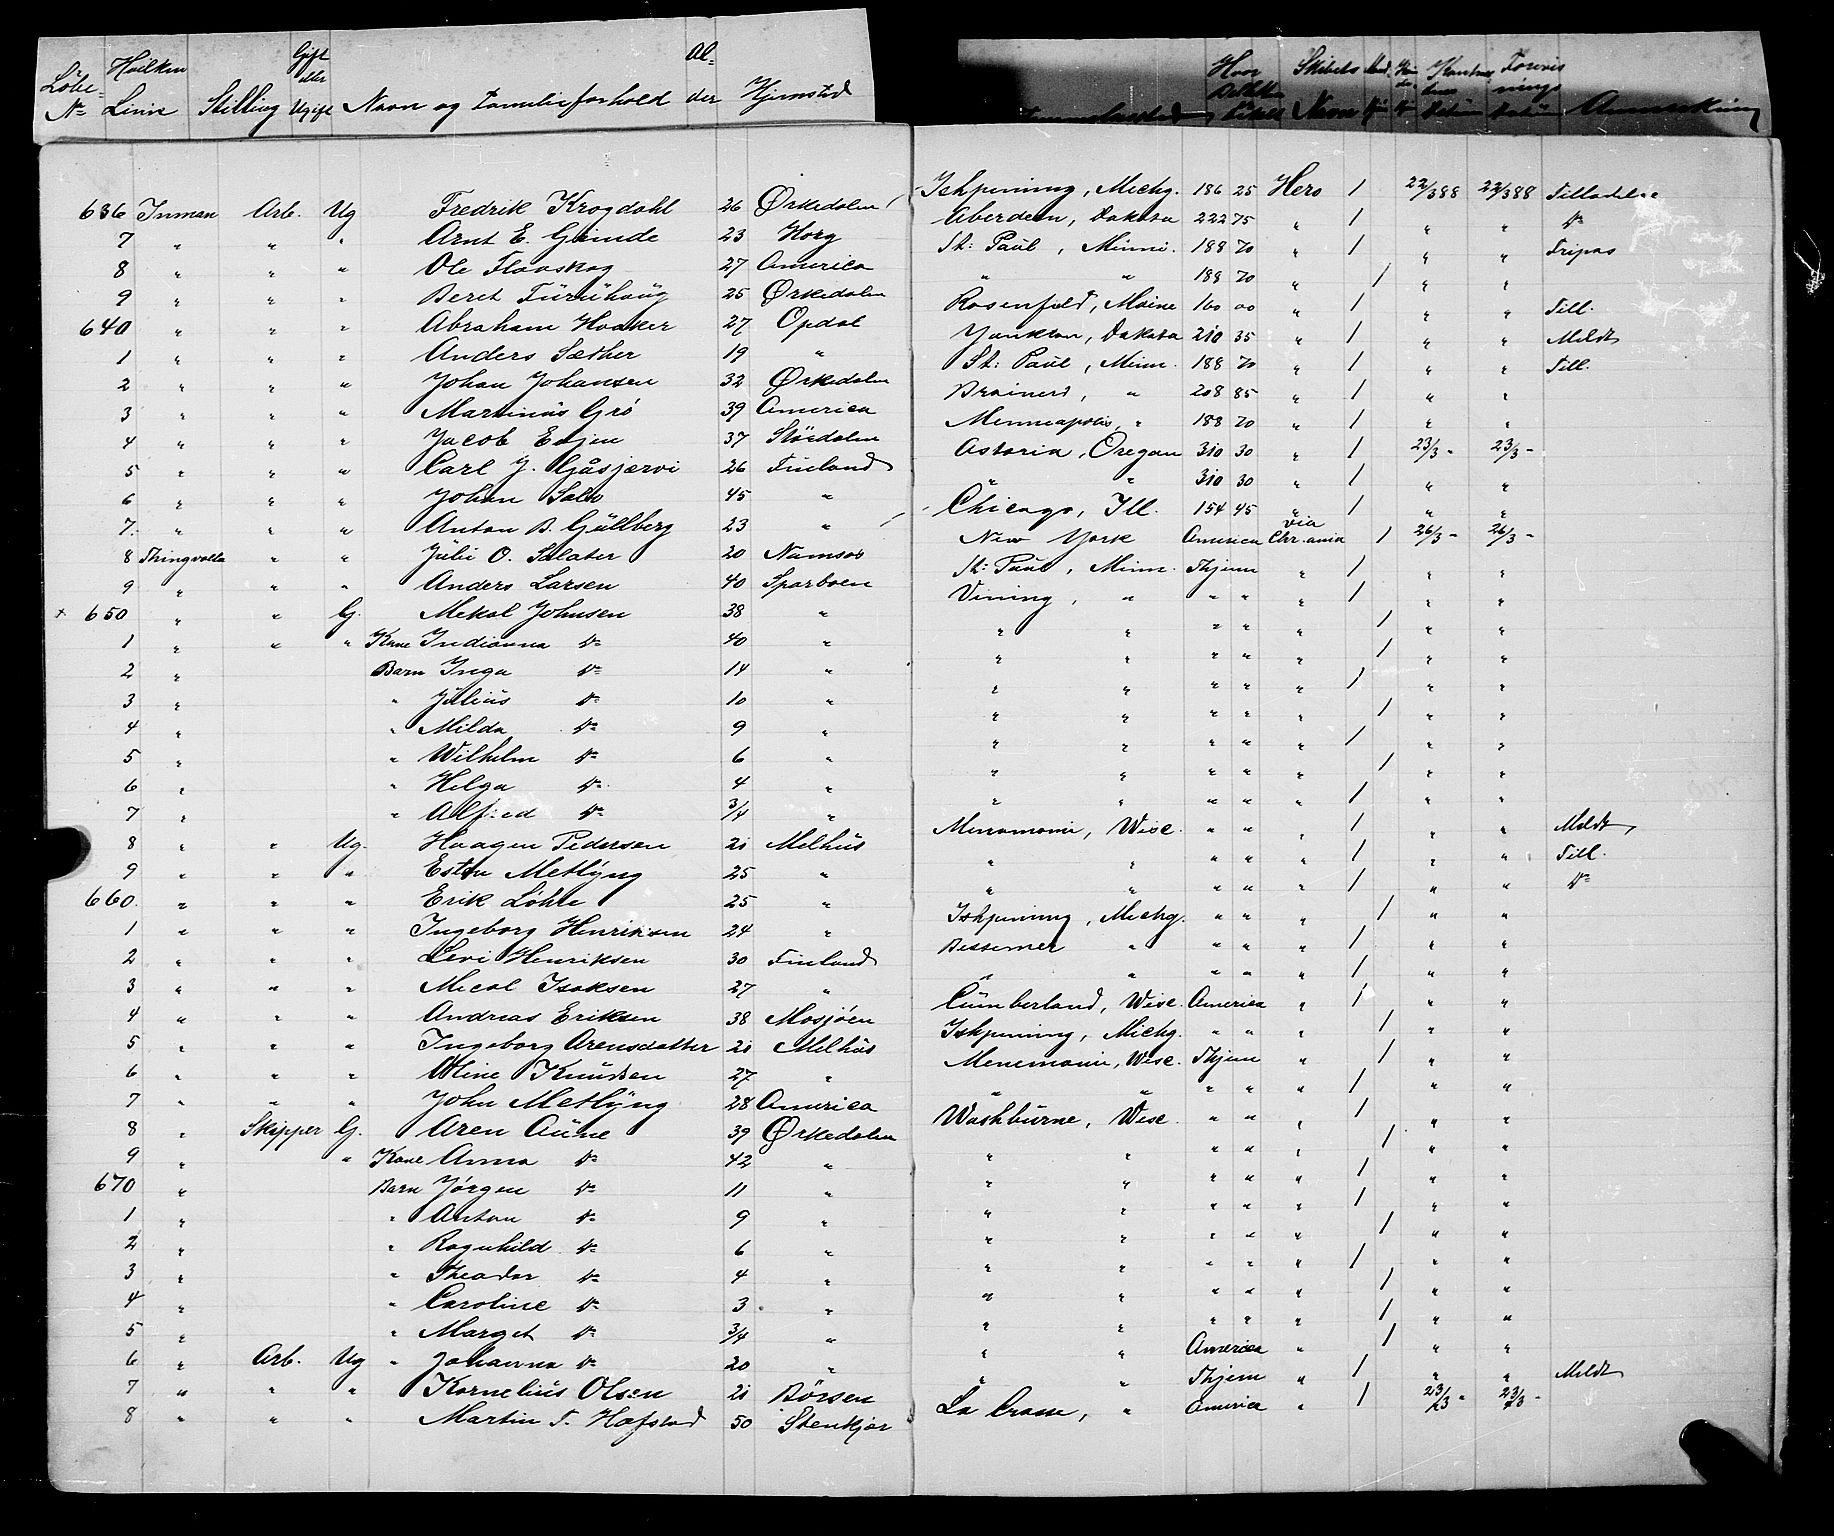 Löbe- Hvilken Gift eller Al- Hvor Billetten Skibets Kontraktens Forevisnings
No Linie Stilling Ugift Navn og Familieforhold der Hjemsted Navn Datum Datum Anmerkning
636 Inman Arb. Ug Fredrik Krogdahl 26 Ørkedalen Ishpeming, Michg. 186 25 Hero 1 22/3 88 22/3 88
7 " " " Arnt E. Grinde 23 Horg Aberdeen, Dakota 222 75 " 1 " " Do
8 " " " Ole Flovskag 27 America St: Paul, Minn. 188 70 " 1 " " Tripos
9 " " " Beret Furuhaug 25 Ørkedalen " " 188 70 " 1 " "
640 " " " Abraham Hoaker 27 Opdal Rosenfeld, Maine 160 00 " 1 " " Till.
1 " " " Anders Sæther 19 " Yankton, Dakota 210 35 " 1 " " Meldt
2 " " " Johan Johansen 32 Ørkedalen St: Paul, Minn. 188 70 " 1 " " Till.
3 " " " Martinus Grö 39 America Brainerd, " 208 85 " 1 " "
4 " " " Jacob Eajen 37 Stördalen Minneapolis, " 188 70 " 1 " "
5 " " " Carl J. Gåsjærvi 26 Finland Astoria, Oregan 310 30 " 1 23/3 - 23/3 -
6 " " " Johan Salo 45 " " " 310 30 " 1 " "
7 " " " Anton B. Gullberg 23 " Chicago, Ill. 154 45 " 1 " "
8 Thingvalla " " Juli O. Salater 20 Namsos New York America via Chr.ania 1 26/3 - 26/3 -
9 " " " Anders Larsen 40 Sparboen St: Paul, Minn. Thjem " 1 " "
+ 650 " " G. Mekal Johnsen 38 " Vining, " " " " 1 " "
1 " " " Kone Indianna Do 40 " " " " " " 1 " "
2 " Barn Inga Do 14 " " " " " " 1 " "
3 " " Julius Do 10 " " " " " " 1 " "
4 " " Milda Do 9 " " " " " " 1 " "
5 " " Wilhelm Do 6 " " " " " " 1 " "
6 " " Helga Do 4 " " " " " " 1 " "
7 " " Alfred Do 3/4 " " " " " " 1 " "
8 " " Ug. Haagen Pedersen 21 Melhus Menomonie, Wisc. " " " 1 " " Meldt
9 " " " Esten Metlyng 25 " " " " " " 1 " " Till.
660 " " " Erik Löhle 25 " " " " " " 1 " " Do
1 " " " Ingeborg Henriksen 24 " Ishpeming, Michg. " " " 1 " "
2 " " " Levi Henriksen 30 Finland Bessemer " " " " 1 " "
3 " " " Micol Isaksen 27 " " " " " " 1 " "
4 " " " Andreas Eriksen 38 Mosjöen Cumberland, Wisc. America " 1 " "
5 " " " Ingeborg Arensdatter 21 Melhus Ishpeming, Michg. " " " 1 " "
6 " " " Oline Knudsen 27 " Menemonie, Wisc. Thjem " 1 " "
7 " " " John Metlyng 28 America " " " " " 1 " "
8 " Skipper G. Aren Aune 39 Ørkedalen Washburne, Wisc. " " " 1 " "
9 " " Kone Anna Do 42 " " " " " " 1 " "
670 " Barn Jörgen Do 11 " " " " " " 1 " "
1 " " Anton Do 9 " " " " " " 1 " "
2 " " Ragnhild Do 6 " " " " " " 1 " "
3 " " Theodor Do 4 " " " " " " 1 " "
4 " " Caroline Do 3 " " " " " " 1 " "
5 " " Marget Do 3/4 " " " " " " 1 " "
6 " Arb. Ug " Johanna Do 20 " " " America " 1 " "
7 " " " Kornelius Olsen 21 Börsen " " Thjem " 1 " " Meldt
8 " " " Martin T. Hafstad 50 Stenkjær La Crosse, " America " 1 23/3 - 23/3 -